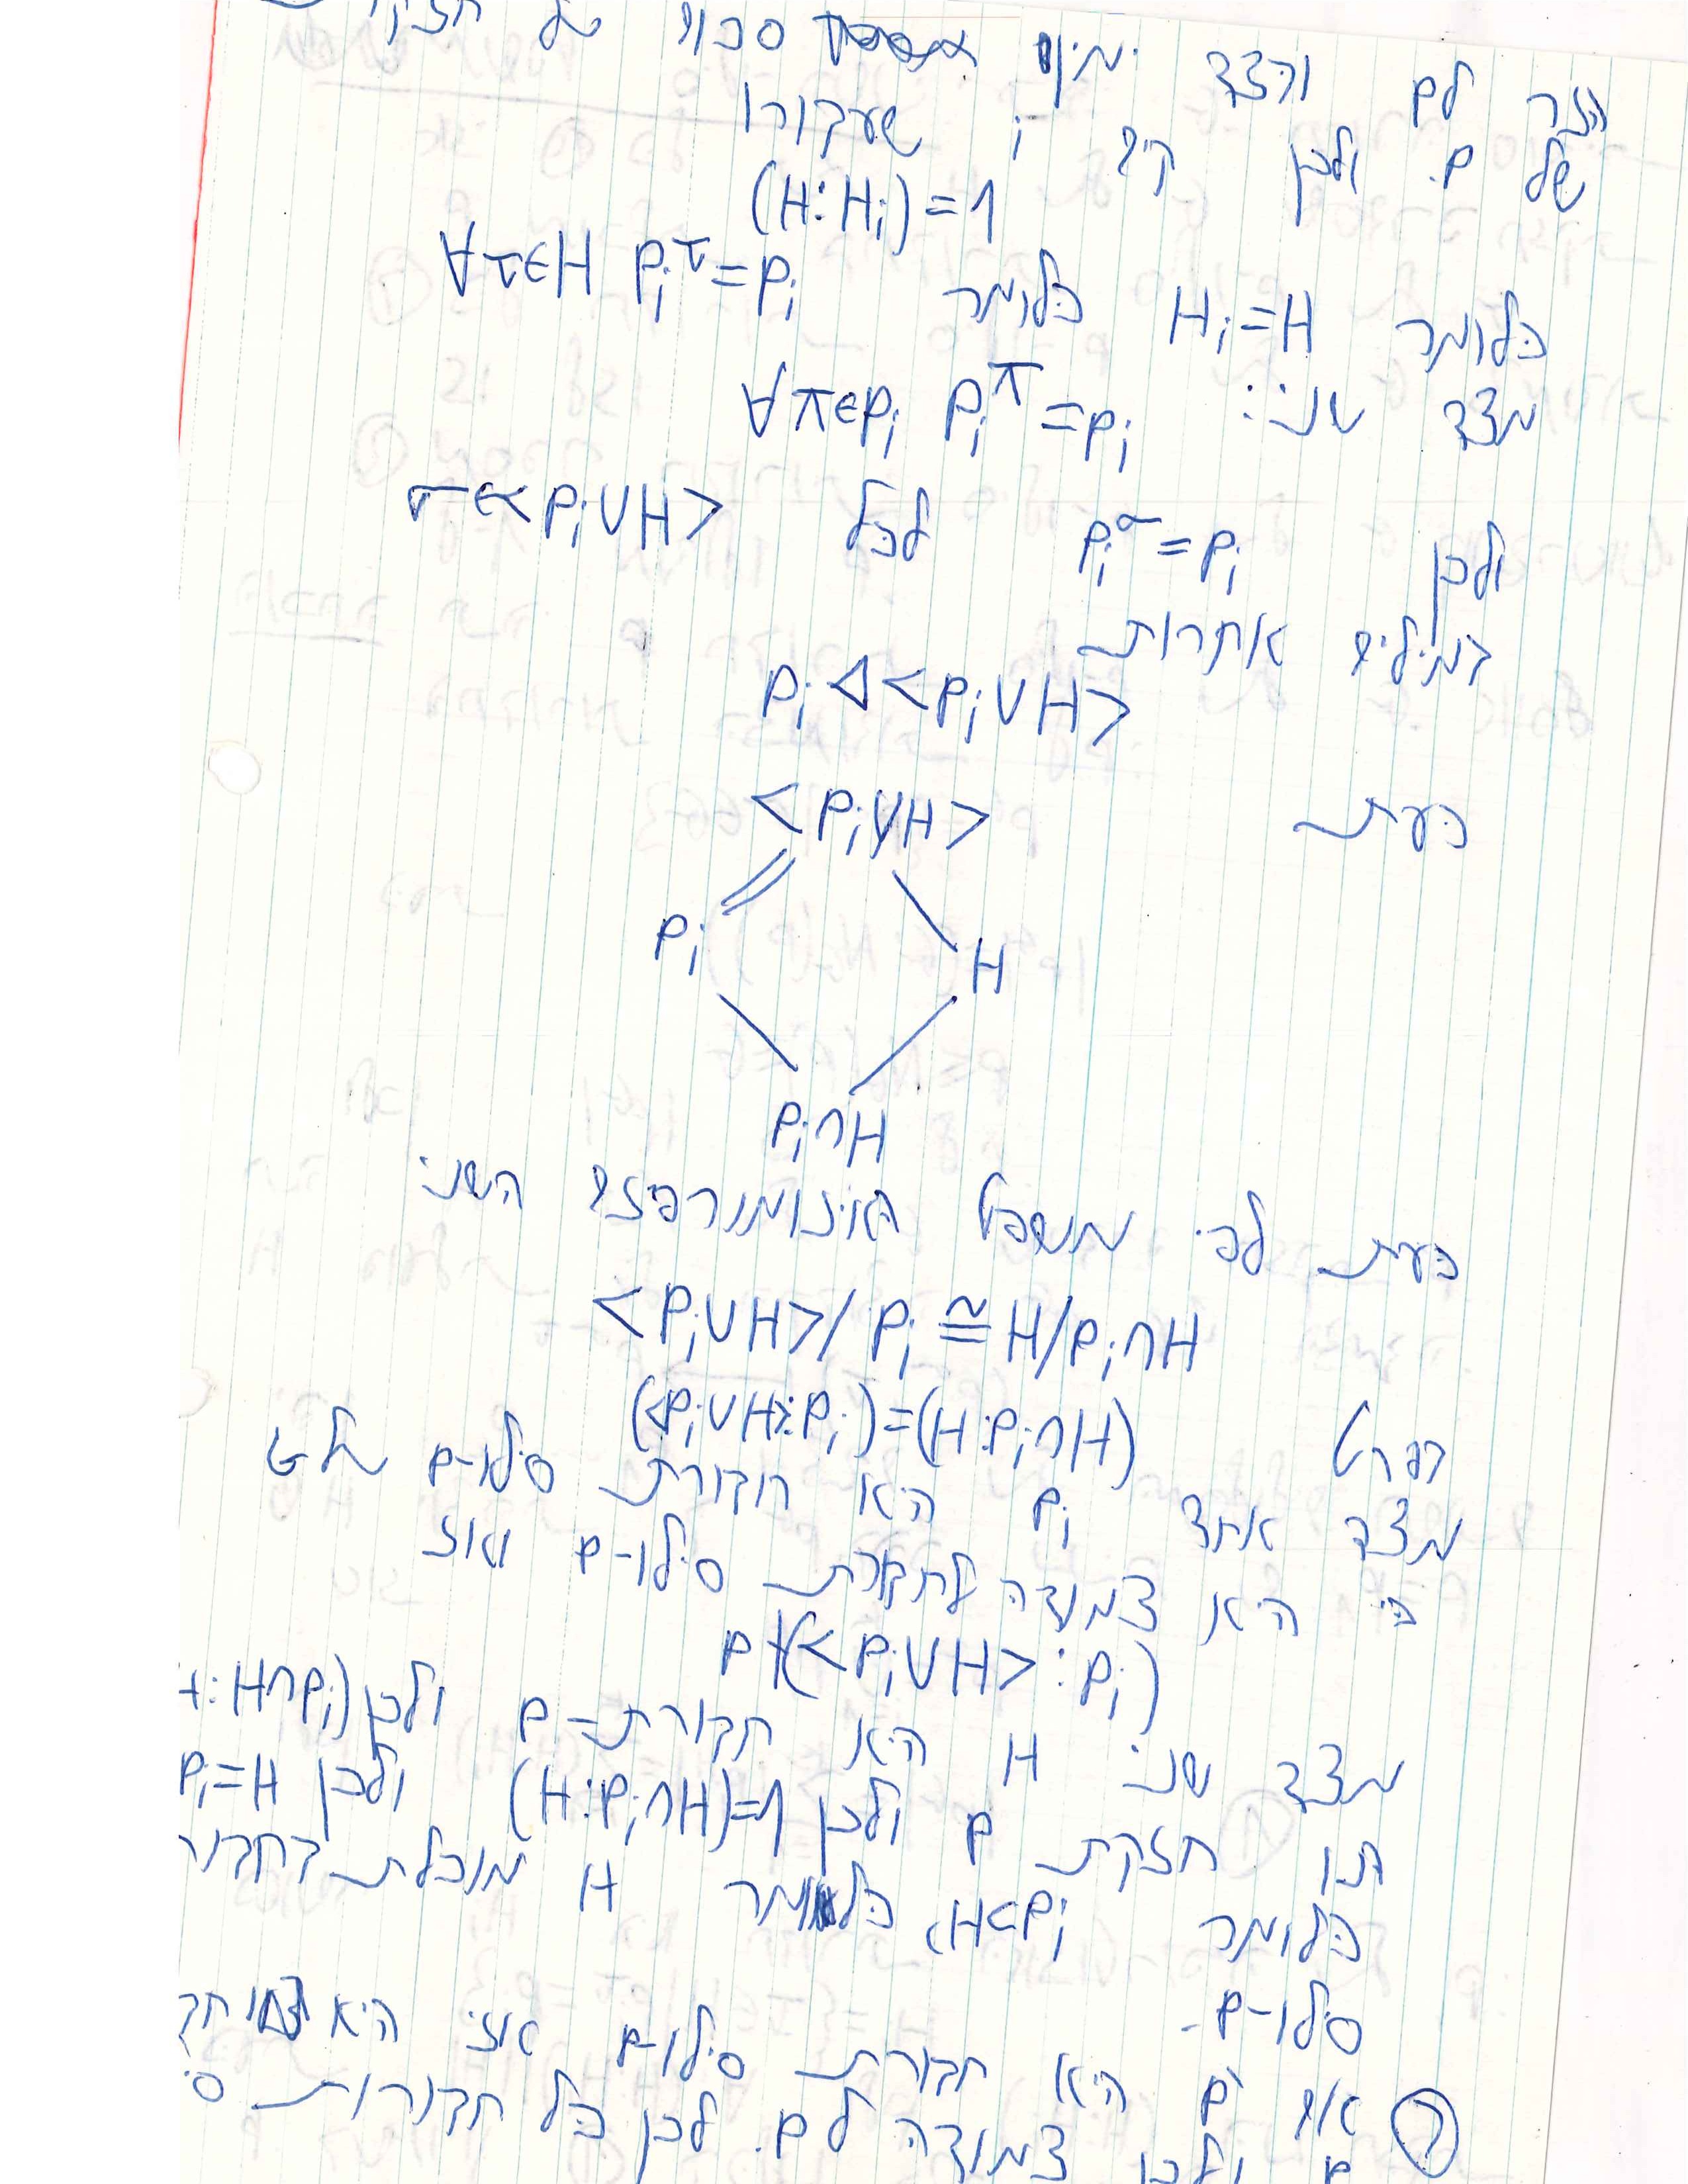 הזר ל p והצד ימין סכום של חזק
של p. ולכן קיים i שעבורו
(H:Hi)=1
כלומר Hi=H כלומר ∀τ∈H Pi^τ=Pi
מצד שני: ∀π∈Pi Pi^π=Pi
ולכן Pi^σ=Pi לכל σ∈<Pi∪H>
במילים אחרות
Pi◁<Pi∪H>
כעת <Pi∪H>
Pi H
Pi∩H
כעת לפי משפט האיזומורפיזם השני
<Pi∪H>/Pi≅H/Pi∩H
בפרט (<Pi∪H>:Pi)=(H:Pi∩H)
מצד אחד Pi היא חבורת סילו-p של G
כי היא צמודה לחבורת סילו-p ואז
p∤(<Pi∪H>:Pi)
מצד שני H היא חבורת-p ולכן :H∩Pi)
חזקת p ולכן (H:Pi∩H)=1 ולכן Pi=H
כלומר H<Pi, כלומר H מוכלת בחבור
סילו-p.
אם P היא חבורת סילו-p אזי היא
צמודה ל P. לכן כל חבורות ס